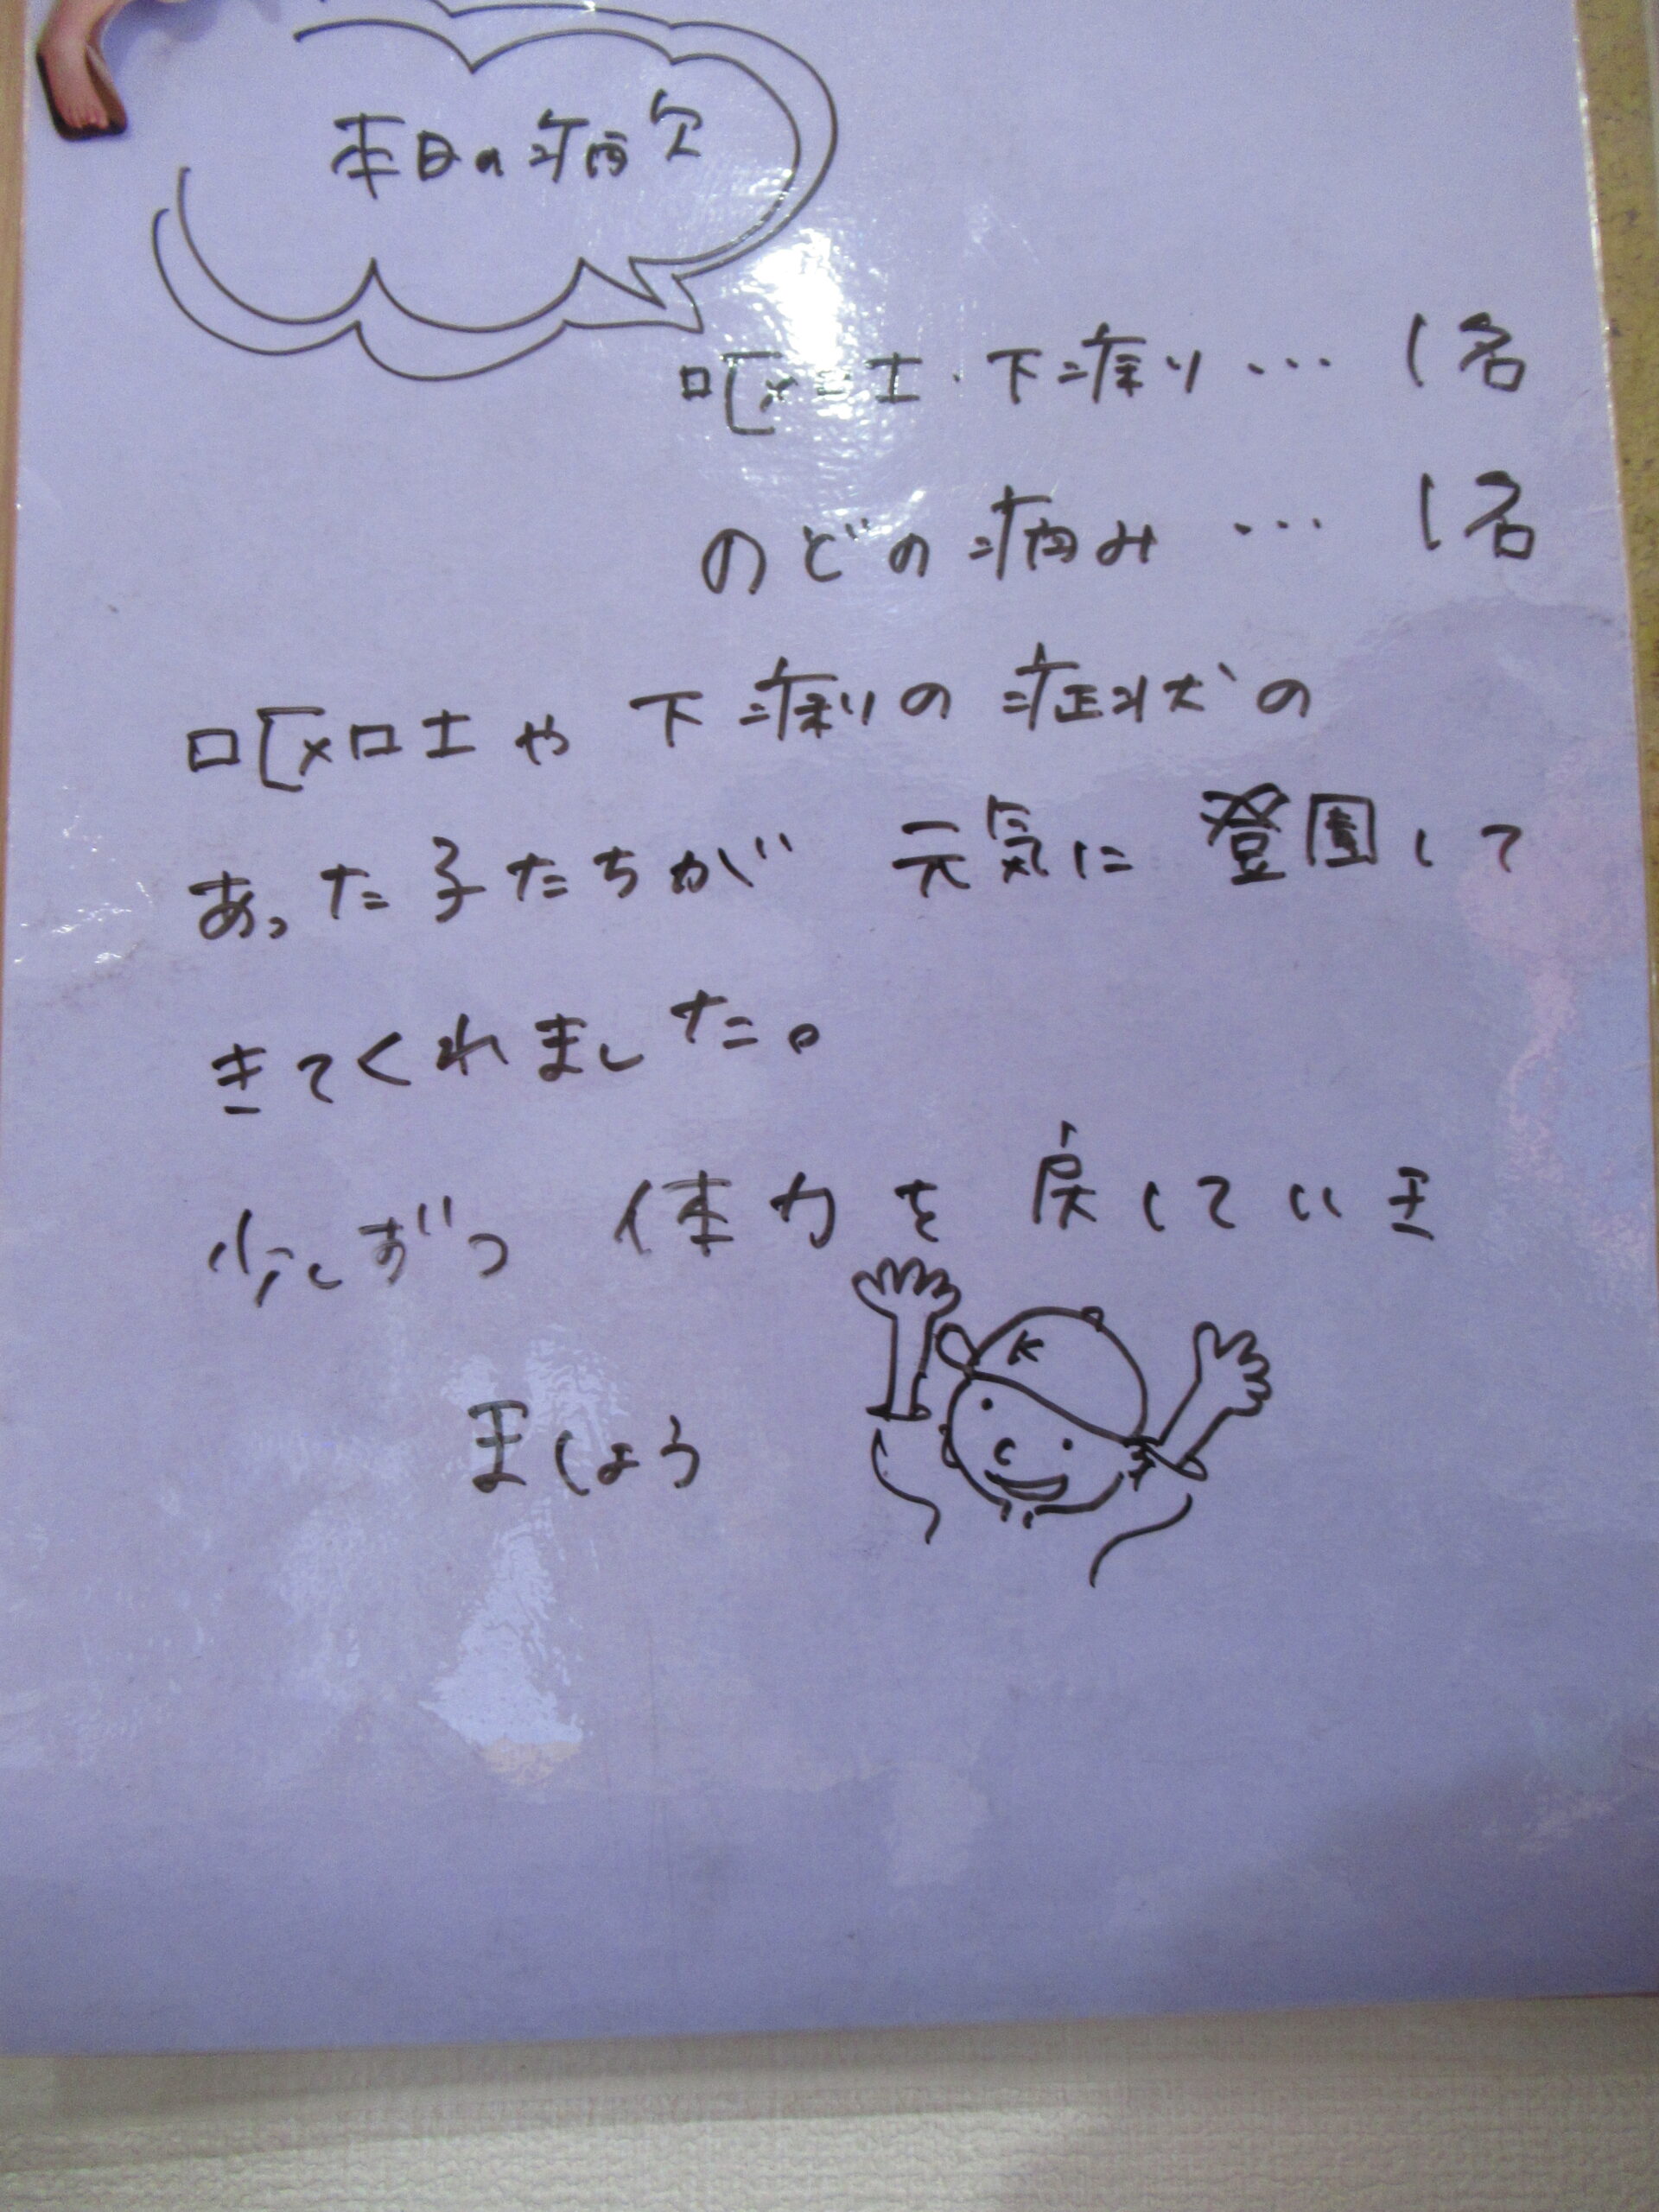 本日の病欠
嘔吐・下痢り… 1名
のどの痛み… 1名
嘔吐や下痢りの症状の
あった子たちが 元気に登園して
きてくれました。
少しずつ 体力を戻していき
ましょう
K